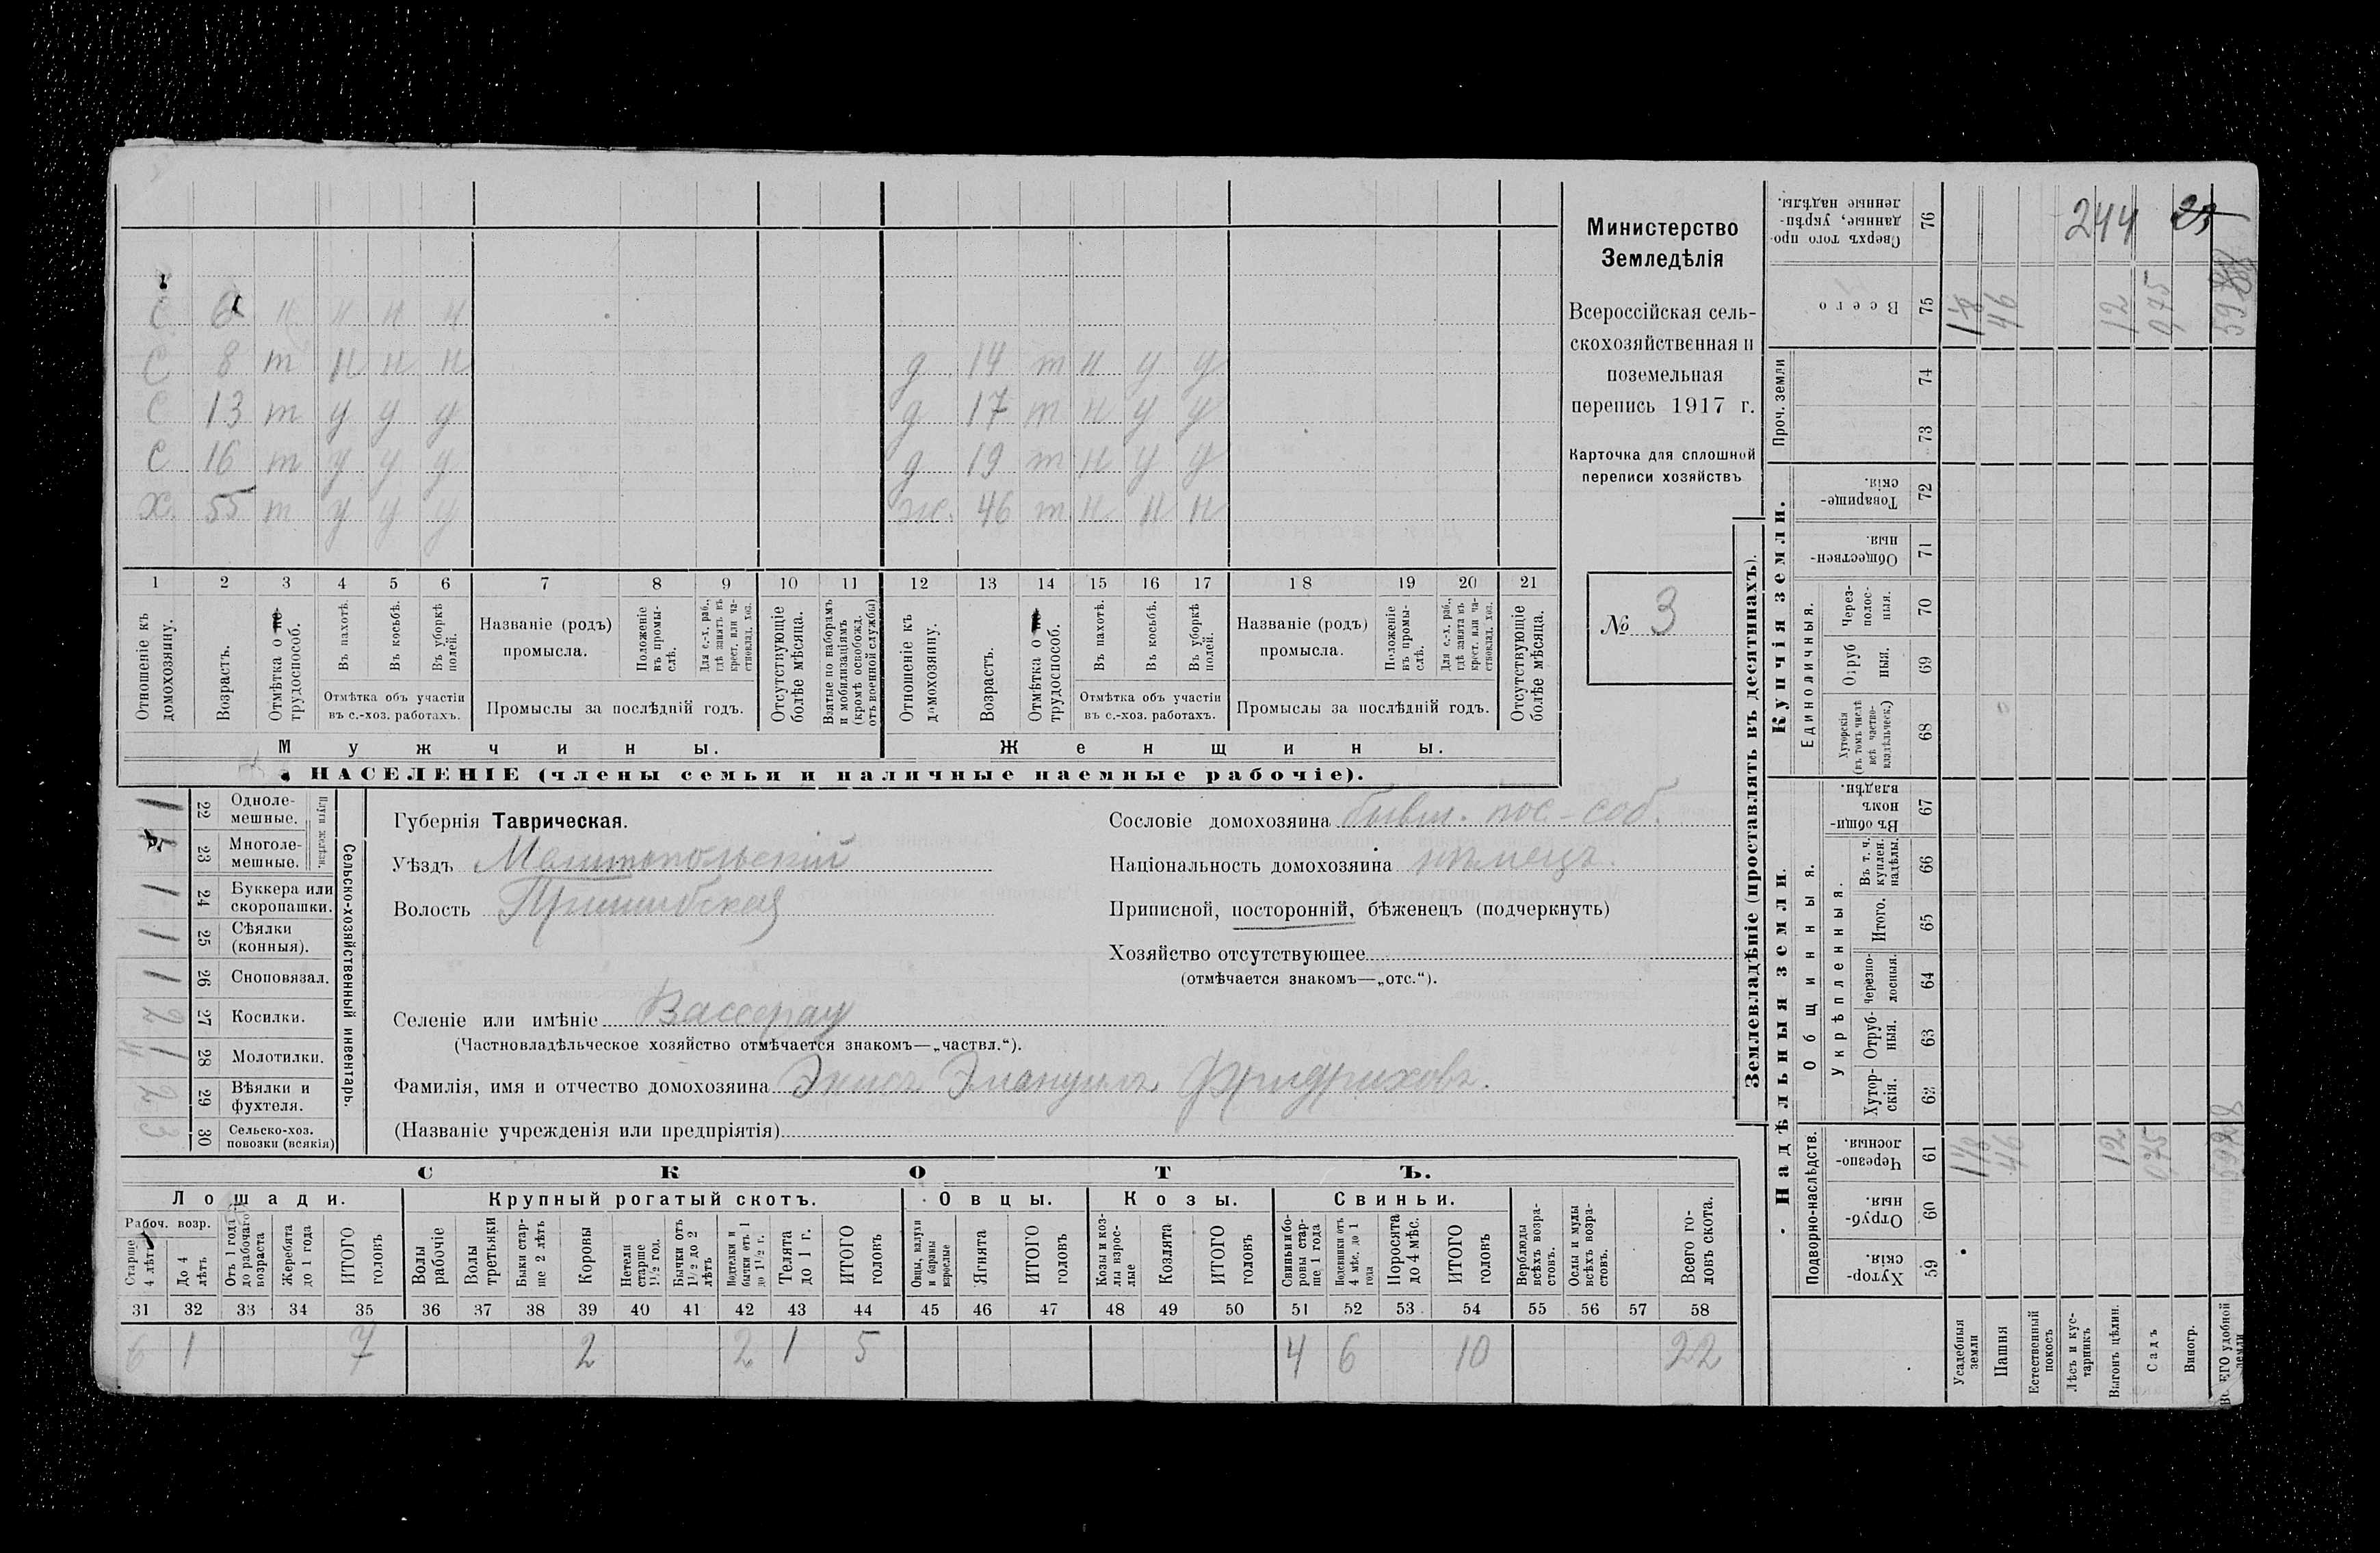 Министерство
Земледѣлія
Всероссійская сель-
скохозяйственная и
поземельная
перепись 1917 г.
Карточка для сплошной
переписи хозяйствъ
№ 3
С 6 н н н н
С 8 т н н н
д 14 т н у у
С 13 т у у у
д 17 т н у у
С 16 т у у у
д 19 т н у у
Х. 55 т у у у
ж. 46 т н н н
1 2 3 4 5 6 7 8 9 10 11 12 13 14 15 16 17 18 19 20 21
Отношеніе къ
домохозяину.
Возрастъ.
Отмѣтка о не-
трудоспособ.
Въ пахотѣ.
Въ косьбѣ.
Въ уборкѣ
полей.
Отмѣтка объ участіи
въ с.-хоз. работахъ.
Названіе (родъ)
промысла.
Положеніе
въ промы-
слѣ.
Для с.-х. раб.,
гдѣ занятъ въ
крест. или ча-
стновлад. хоз.
Промыслы за послѣдній годъ.
Отсутствующіе
болѣе мѣсяца.
Взятые по наборамъ
и мобилизаціямъ
(кромѣ освобожд.
отъ военной службы)
Отношеніе къ
домохозяину.
Возрастъ.
Отмѣтка о не-
трудоспособ.
Въ пахотѣ.
Въ косьбѣ.
Въ уборкѣ
полей.
Отмѣтка объ участіи
въ с.-хоз. работахъ.
Названіе (родъ)
промысла.
Положеніе
въ промы-
слѣ.
Для с.-х. раб.,
гдѣ занята въ
крест. или ча-
стновлад. хоз.
Промыслы за послѣдній годъ.
Отсутствующіе
болѣе мѣсяца.
Мужчины.
Женщины.
НАСЕЛЕНІЕ (члены семьи и наличные наемные рабочіе).
Сельско-хозяйственный инвентарь.
Плуги желѣзн.
22 Одноле-
мешные.
1
23 Многоле-
мешные.
24 Буккера или
скоропашки.
1
25 Сѣялки
(конныя).
1
26 Сноповязал.
1
27 Косилки.
2
28 Молотилки.
1
29 Вѣялки и
фухтеля.
2
30 Сельско-хоз.
повозки (всякія)
3
Губернія Таврическая.
Уѣздъ Мелитопольскій
Волость Пришибская
Селеніе или имѣніе Вассерау
(Частновладѣльческое хозяйство отмѣчается знакомъ—„частвл.“).
Фамилія, имя и отчество домохозяина Эмануилъ Фридриховъ.
(Названіе учрежденія или предпріятія)
Сословіе домохозяина бывш. пос.-соб.
Національность домохозяина нѣмецъ.
Приписной, посторонній, бѣженецъ (подчеркнуть)
Хозяйство отсутствующее
(отмѣчается знакомъ—„отс.“).
СКОТЪ.
Лошади.
Рабоч. возр.
Старше
4 лѣтъ
До 4
лѣтъ
Отъ 1 года
до рабочаго
возраста
Жеребята
до 1 года
ИТОГО
головъ
Крупный рогатый скотъ.
Волы
рабочіе
Волы
третьяки
Быки стар-
ше 2 лѣтъ
Коровы
Нетели
старше
1½ год.
Бычки отъ
1½ до 2
лѣтъ
Подтелки и
бычки отъ 1
до 1½ г.
Телята
до 1 г.
ИТОГО
головъ
Овцы.
Овцы, валухи
и бараны
взрослые
Ягнята
ИТОГО
головъ
Козы.
Козы и коз-
лы взрос-
лые
Козлята
ИТОГО
головъ
Свиньи.
Свиньи и бо-
ровы стар-
ше 1 года
Подсвинки отъ
4 мѣс. до 1
года
Поросята
до 4 мѣс.
ИТОГО
головъ
Верблюды
всѣхъ возра-
стовъ.
Ослы и мулы
всѣхъ возра-
стовъ.
Всего го-
ловъ скота.
31 32 33 34 35 36 37 38 39 40 41 42 43 44 45 46 47 48 49 50 51 52 53 54 55 56 57 58
6 1 7 2 2 1 5 4 6 10 22
Землевладѣніе (проставлять въ десятинахъ).
Надѣльныя земли.
Купчія земли.
Проч. земли
Подворно-наслѣдств.
Хутор-
скія.
59
Отруб-
ныя.
60
Черезпо-
лосныя.
61
Общинныя.
Укрѣпленныя.
Хутор-
скія.
62
Отруб-
ныя.
63
Черезпо-
лосныя.
64
Итого.
65
Въ т. ч.
куплен.
надѣлы
66
Въ общин-
номъ
владѣн.
67
Единоличныя.
Хуторскія
(въ томъ числѣ
всѣ частно-
владѣльческ.)
68
Отруб
ныя.
69
Через-
полос-
ныя.
70
Обществен-
ныя.
71
Товарище-
скія.
72
73
74
Всего
75
Сверхъ того про-
данные, укрѣп-
ленные надѣлы.
76
Усадебныя
земли
Пашня
Естественный
покосъ
Лѣсъ и кус-
тарникъ
Выгонъ цѣлин.
Садъ
Виногр.
ВСЕГО удобной
земли
46
12
0,75
46
12
0,75
244